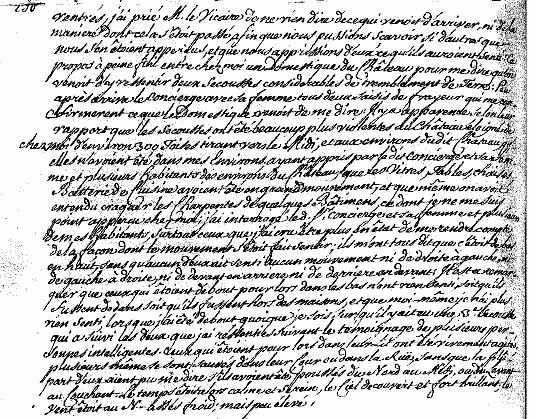 rentrés, j'ai prié M. le Vicaire de ne rien dire de ce qui venoit d'arriver, ni de la
maniere dont cela s'étoit passé afin que nous pussions Scavoir si d'autres que
nous s'en étoient apperçus, et que nous apprissions d'eux ce qu'ils auroient Senti. Ce
propos à peine fini entre chez moi un Domestique du Château pour me dire qu'on
venoit d'y ressentir deux Secousses considerables de tremblement de Terre. Peu
après arrive le Concierge avec sa femme tous deux Saisis de frayeur qui me
confirmerent ce que le Domestique venoit de me dire. Il y a apparence Selon leur
rapport que les Secousses ont été beaucoup plus violentes au Château éloigné de
chez moi d'environ 300 Toises tirant vers le Midi, et aux environs du dit Château qu'
elles n'avoient été dans mes Environs, ayant appris par le dit Concierge et sa fem-
me et plusieurs habitants des environs du Château, que les Vitres, Tables, chaises
Batterie de Cuisine avoient été en grand mouvement, et que même on avoit
entendu craquer les Charpentes de quelques Bâtimens, ce dont je ne me suis
point apperçu chez moi; j'ai interrogé le d. Concierge et sa femme et plusieurs
de mes habitants, surtout ceux que j'ai cru être plus en état de me rendre compte
de la façon dont le mouvement S'étoit fait Sentir; ils m'ont tous dit que c'étoit de bas
en haut, sans qu'aucun d'eux ait senti aucun mouvement ni de droite à gauche, ni
de gauche à droite, ni de devant en arriere, ni de derriere en devant. Il est à remar-
quer que ceux qui étoient debout pour lors dans le bas n'ont rien Senti, soit qu'ils
fussent dedans soit qu'ils fussent hors des maisons, et que moi-même je n'ai plus
rien Senti, lorsque j'ai été debout quoique je sois sur qu'il y ait eu une 3.e Secousse
qui a suivi les deux que j'ai ressenties suivant le temoignage de plusieurs per-
sonnes intelligentes. Ceux qui étoient pour lors dans leur Lit ont été vivement agités
plusieurs même se sont sauvés dans leur Cour ou dans la Rue, sans que la plus-
part d'eux aient pu me dire s'ils avoient été poussés du Nord au Midi, ou du Levant
au Couchant. Le temps étoit alors calme et Serein, le Ciel découvert et fort brillant le
Vent étoit au N. assés froid, mais peu élevé.